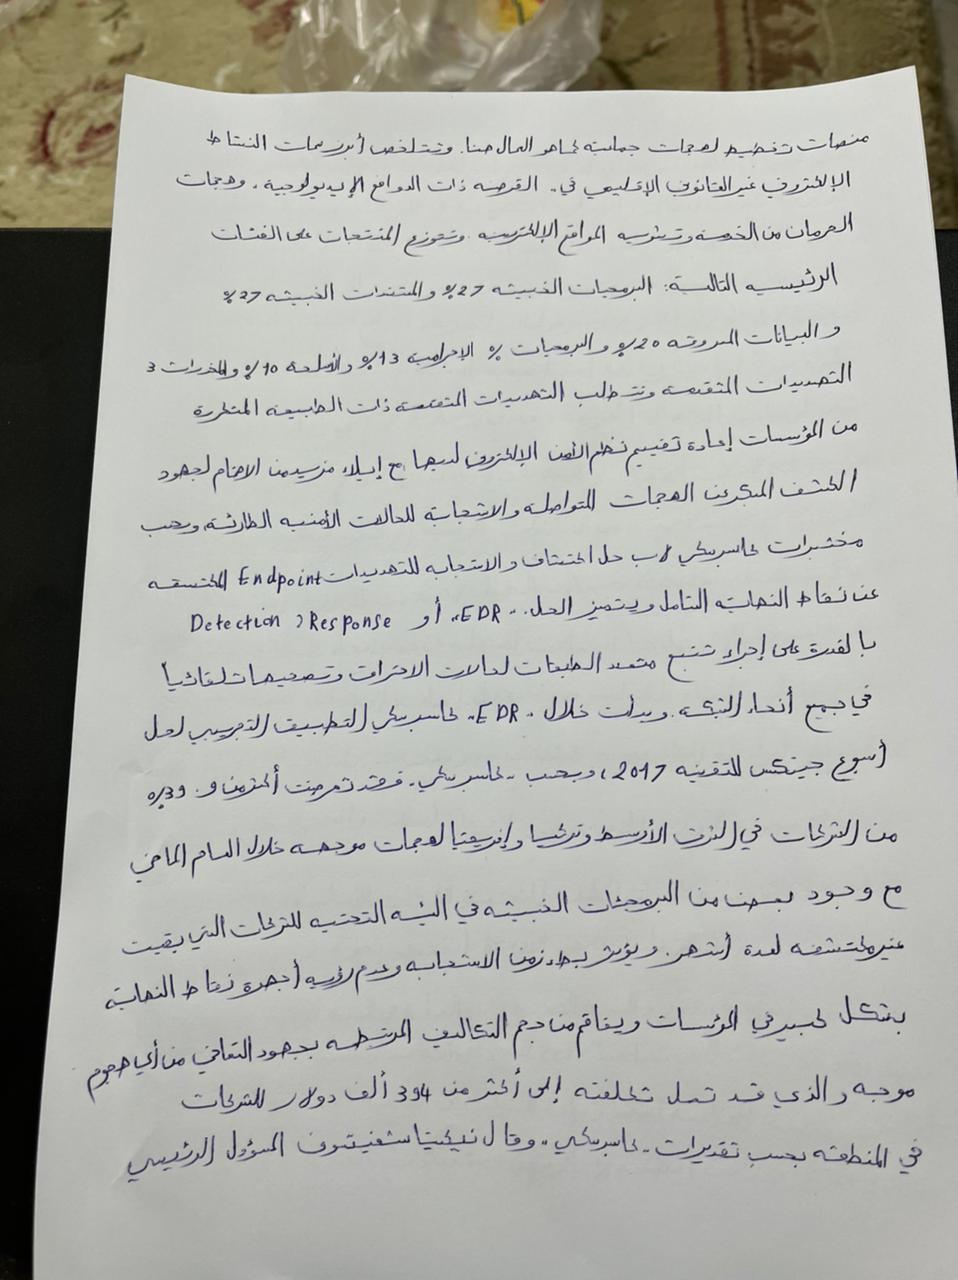 منصات تخطيط لهجمات جماعية كما هو الحال هنا. وتتلخص أبرز سمات النشاط
الإلكتروني غير القانوني الإقليمي في. القرصنه ذات الدوافع الإيديولوجية. وهجمات
الحرمان من الخدمة وتشويه المواقع الإلكترونيه. وتتوزع المنتجات على الفئات
الرئيسيه التالية: البرمجيات الخبيثه 27% والمستندات الخبيثه 27%
و البيانات المسروقه 20% و البرمجيات % الإجرامية 13% والأسلحة 10% والمخدرات 3
التهديدات المتقدمة وتتطلب التهديدات المتقدمة ذات الطبيعه المتطورة
من المؤسسات إعادة تقييم نظم الأمن الإلكتروني لديها مع إيلاء مزيد من الاهتمام لجهود
الكشف المبكر عن الهجمات المتواصلة والاستجابة للحالات الأمنيه الطارئة، وبحسب
مختبرات كاسبرسكي لاب حل اكتشاف و الاستجابه للتهديدات Endpoint المكتشفه
عند نقاط النهاية الشامل ويتميز الحل. .EDR. أو Detection , Response
بالقدرة على إجراء تتبع متعدد الطبقات لحالات الاختراق وتصحيحها تلقائياً
في جميع أنحاء الشبكه. وبدأت خلال .EDR. كاسبرسكي التطبيق التجريبي لحل
أسبوع جيتكس للتقنيه 2017، وبحسب .كاسبرسكي. فقد تعرضت أكثر من و. 39%
من الشركات في الشرق الأوسط وتركيا وإفريقيا لهجمات موجهه خلال العام الماضي
مع وجود بعض من البرمجيات الخبيثه في البنيه التحتيه للشركات التي بقيت
غير مكتشفه لعدة أشهر. ويؤثر بطء زمن الاستجابه وعدم رؤيه أجهزة نقاط النهاية
بشكل كبير في المؤسسات ويفاقم من حجم التكاليف المرتبطه بجهود التعافي من أي هجوم
موجه والذي قد تصل تكلفته إلى أكثر من 394 ألف دولار للشركات
في المنطقه بحسب تقديرات .كاسبرسكي. وقال نيكيتا شفيتسوف المسؤول الرئيسي